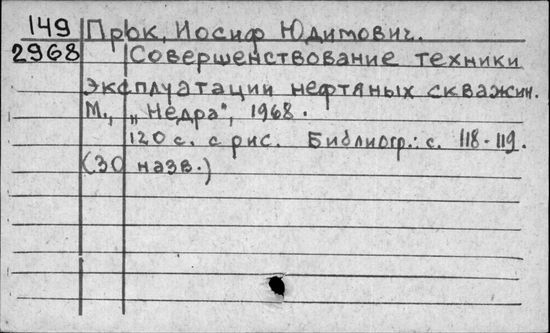 149 Прок, Иосиф Юдимович.
2968 Совершенствование техники
эксплуатации нефтяных скважин.
М., „Недра", 1968.
120 с. с рис. Библиогр.: с. 118-119.
(30 назв.)